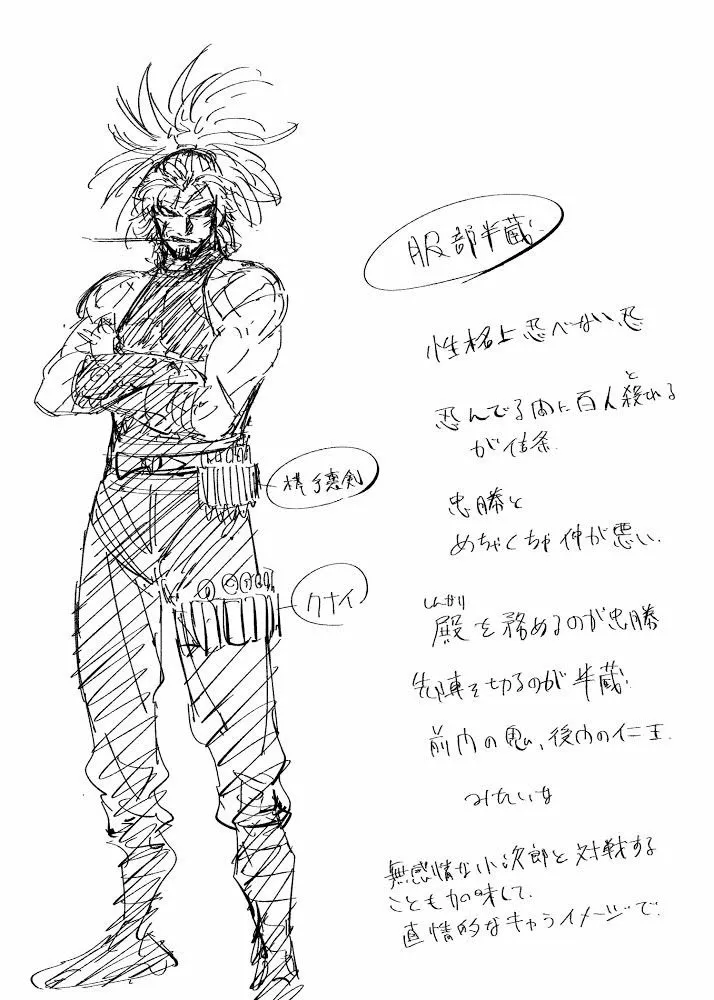 服部半蔵
性格上忍べない忍
忍んでる内に百人殺れる
と
が信条
棒手裏剣
クナイ
忠勝と
めちゃくちゃ仲が悪い.
しんがり
殿を務めるのが忠勝
先陣を切るのが半蔵.
前門の鬼、後門の仁王.
みたいな
無感情な小次郎と対戦する
ことも加味して.
直情的なキャライメージで.